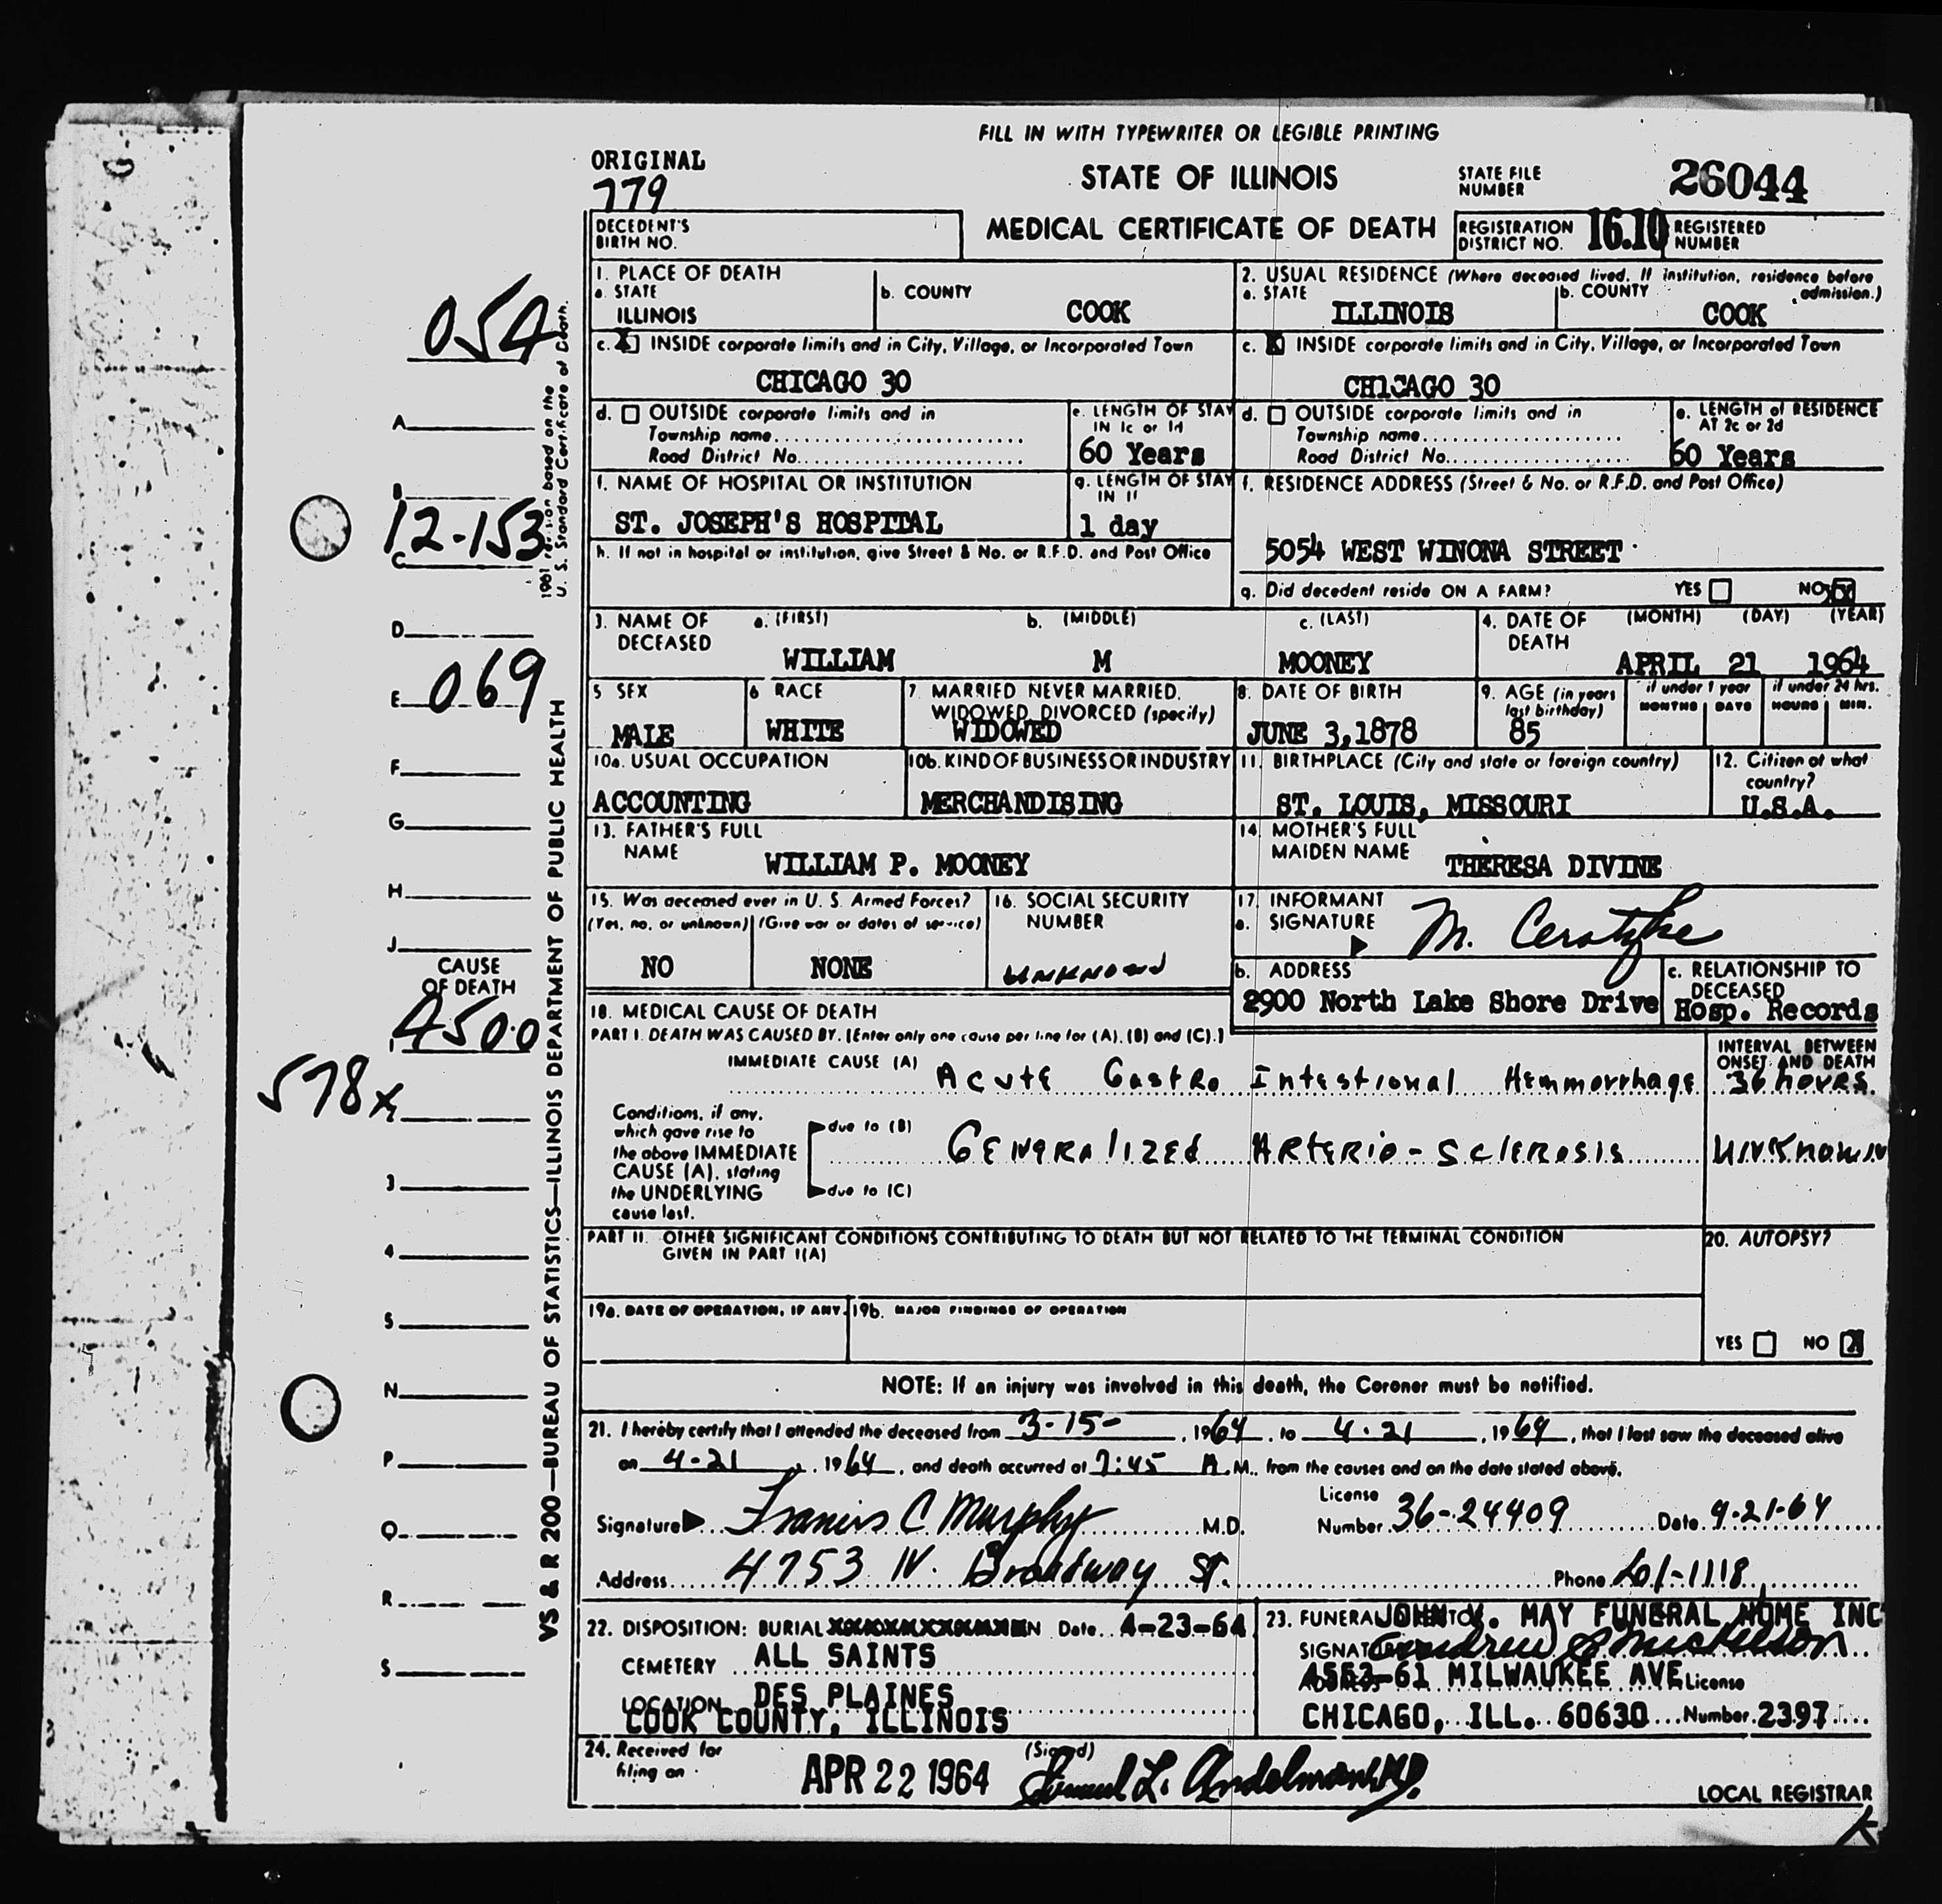 FILL IN WITH TYPEWRITER OR LEGIBLE PRINTING
ORIGINAL
779
STATE OF ILLINOIS
STATE FILE NUMBER 26044
DECEDENT'S BIRTH NO.
MEDICAL CERTIFICATE OF DEATH
REGISTRATION DISTRICT NO. 16.10
REGISTERED NUMBER
1. PLACE OF DEATH
a. STATE ILLINOIS
b. COUNTY COOK
2. USUAL RESIDENCE (Where deceased lived. If institution, residence before admission.)
a. STATE ILLINOIS
b. COUNTY COOK
c. X INSIDE corporate limits and in City, Village, or Incorporated Town
CHICAGO 30
c. X INSIDE corporate limits and in City, Village, or Incorporated Town
CHICAGO 30
d. OUTSIDE corporate limits and in
Township name
Road District No.
e. LENGTH OF STAY IN 1c or 1d
60 Years
d. OUTSIDE corporate limits and in
Township name
Road District No.
e. LENGTH of RESIDENCE AT 2c or 2d
60 Years
f. NAME OF HOSPITAL OR INSTITUTION
ST. JOSEPH'S HOSPITAL
g. LENGTH OF STAY IN 1f
1 day
f. RESIDENCE ADDRESS (Street & No. or R.F.D. and Post Office)
5054 WEST WINONA STREET
h. If not in hospital or institution, give Street & No. or R.F.D. and Post Office
g. Did decedent reside ON A FARM? YES NO X
3. NAME OF DECEASED
a. (FIRST) b. (MIDDLE) c. (LAST)
WILLIAM M MOONEY
4. DATE OF DEATH (MONTH) (DAY) (YEAR)
APRIL 21 1964
5 SEX
MALE
6 RACE
WHITE
7. MARRIED NEVER MARRIED, WIDOWED DIVORCED (specify)
WIDOWED
8. DATE OF BIRTH
JUNE 3,1878
9. AGE (in years last birthday)
85
if under 1 year MONTHS DAYS
if under 24 hrs. HOURS MIN.
10a. USUAL OCCUPATION
ACCOUNTING
10b. KIND OF BUSINESS OR INDUSTRY
MERCHANDISING
11. BIRTHPLACE (City and state or foreign country)
ST. LOUIS, MISSOURI
12. Citizen of what country?
U.S.A.
13. FATHER'S FULL NAME
WILLIAM P. MOONEY
14. MOTHER'S FULL MAIDEN NAME
THERESA DIVINE
15. Was deceased ever in U. S. Armed Forces?
(Yes, no, or unknown) (Give war or dates of service)
NO NONE
16. SOCIAL SECURITY NUMBER
UNKNOWN
17. INFORMANT
a. SIGNATURE M.
b. ADDRESS
2900 North Lake Shore Drive
c. RELATIONSHIP TO DECEASED
Hosp. Records
18. MEDICAL CAUSE OF DEATH
PART I. DEATH WAS CAUSED BY. [Enter only one cause per line for (A), (B) and (C).]
INTERVAL BETWEEN ONSET AND DEATH
IMMEDIATE CAUSE (A) Acute Gastro Intestional Hemmorrhage 36 hours
Conditions, if any, which gave rise to the above IMMEDIATE CAUSE (A), stating the UNDERLYING cause last.
due to (B) GENERALIZED ARTERIO-SCLEROSIS UNKNOWN
due to (C)
PART II. OTHER SIGNIFICANT CONDITIONS CONTRIBUTING TO DEATH BUT NOT RELATED TO THE TERMINAL CONDITION GIVEN IN PART I(A)
20. AUTOPSY?
YES NO X
19a. DATE OF OPERATION, IF ANY
19b. MAJOR FINDINGS OF OPERATION
NOTE: If an injury was involved in this death, the Coroner must be notified.
21. I hereby certify that I attended the deceased from 3-15-, 1964, to 4-21, 1964, that I last saw the deceased alive
on 4-21, 1964, and death occurred at 7:45 A.M., from the causes and on the date stated above.
Signature Francis C Murphy M.D.
License Number 36-24409 Date 4-21-64
Address 4753 N. Broadway St. Phone Lo1-1118
22. DISPOSITION: BURIAL Date 4-23-64
CEMETERY ALL SAINTS
LOCATION DES PLAINES
COOK COUNTY, ILLINOIS
23. FUNERAL JOHN V. MAY FUNERAL HOME INC
SIGNAT
4553-61 MILWAUKEE AVE License
CHICAGO, ILL. 60630 Number 2397
24. Received for filing on APR 22 1964
(Signed) Samuel L. Andelman M.D.
LOCAL REGISTRAR
K
054
A
B
12-153
C
D
E 069
F
G
H
J
CAUSE OF DEATH
1 4500
578x
3
4
5
N
P
Q
R
S
1961 revision based on the U. S. Standard Certificate of Death.
VS & R 200—BUREAU OF STATISTICS—ILLINOIS DEPARTMENT OF PUBLIC HEALTH